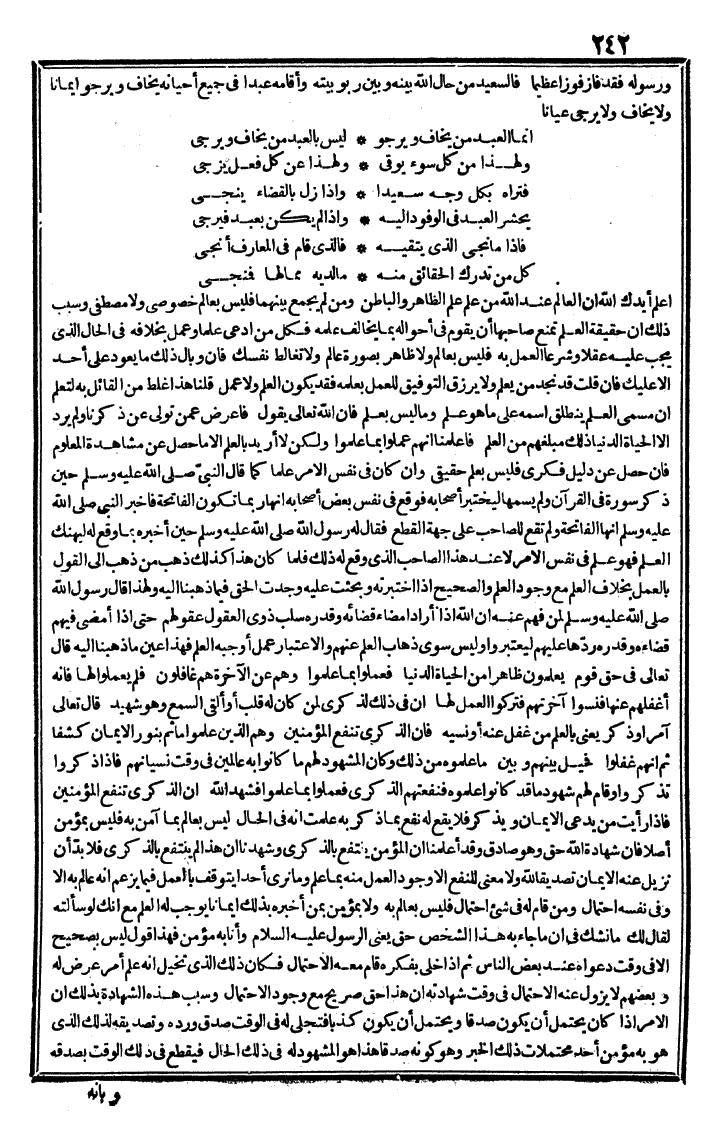 ٢٤٢
ورسوله فقد فاز فوزا عظيما فالسعيد من حال الله بينه وبين ربوبيته وأقامه عبدا في جميع أحيانه يخاف ويرجو ايمانا
ولا يخاف ولا يرجى عيانا
انما العبد من يخاف ويرجو * ليس بالعبد من يخاف ويرجى
ولهذا من كل سوء يوقى * ولهذا عن كل فعل يزجى
فتراه بكل وجه سعيدا * واذا زل بالقضاء ينجى
يحشر العبد في الوفود اليه * واذا لم يكن بعبد فيرجى
فاذا ما نجى الذي يتقيه * فالذي قام في المعارف أنجى
كل من تدرك الحقائق منه * ما لديه مما لها فنجى
اعلم أيدك الله ان العالم عند الله من علم علم الظاهر والباطن ومن لم يجمع بينهما فليس بعالم خصوصي ولا مصطفى وسبب
ذلك ان حقيقة العلم تمنع صاحبها أن يقوم في أحواله بما يخالف علمه فكل من ادعى علما وعمل بخلافه في الحال الذى
يجب عليه عقلا وشرعا العمل به فليس بعالم ولا ظاهر بصورة عالم ولا تغالط نفسك فان وبال ذلك ما يعود على أحد
الا عليك فان قلت قد نجد من يعلم ولا يرزق التوفيق للعمل بعلمه فقد يكون العلم ولا عمل قلنا هذا غلط من القائل به لتعلم
ان مسمى العلم ينطلق اسمه على ما هو علم وما ليس بعلم فان الله تعالى يقول فاعرض عمن تولى عن ذكرنا ولم يرد
الا الحياة الدنيا ذلك مبلغهم من العلم فاعلمنا انهم عملوا بما علموا ولكن لا أريد بالعلم الا ما حصل عن مشاهدة المعلوم
فان حصل عن دليل فكرى فليس بعلم حقيقى وان كان في نفس الامر علما كما قال النبى صلى الله عليه وسلم حين
ذكر سورة في القرآن ولم يسمها ليختبر أصحابه فوقع في نفس بعض أصحابه انها ربما تكون الفاتحة فاخبر النبي صلى الله
عليه وسلم انها الفاتحة ولم تقع للصاحب على جهة القطع فقال له رسول الله صلى الله عليه وسلم حين أخبره بما وقع له ليهنك
العلم فهو علم في نفس الامر لا عند هذا الصاحب الذى وقع له ذلك فلما كان هذا كذلك ذهب من ذهب الى القول
بالعمل بخلاف العلم مع وجود العلم والصحيح اذا اختبرته وبحثت عليه وجدت الحق فيما ذهبنا اليه ولهذا قال رسول الله
صلى الله عليه وسلم لمن فهم عنه ان الله اذا أراد امضاء قضائه وقدره سلب ذوى العقول عقولهم حتى اذا أمضى فيهم
قضاءه وقدره ردها عليهم ليعتبروا وليس سوى ذهاب العلم عنهم والاعتبار عمل أوجبه العلم فهذا عين ما ذهبنا اليه قال
تعالى في حق قوم يعلمون ظاهرا من الحياة الدنيا فعملوا بما علموا وهم عن الآخرة هم غافلون فلم يعملوا لها فانه
أغفلهم عنها فنسوا آخرتهم فتركوا العمل لها ان في ذلك لذكرى لمن كان له قلب أو ألقى السمع وهو شهيد قال تعالى
آمرا وذكر يعني بالعلم من غفل عنه أو نسيه فان الذكرى تنفع المؤمنين وهم الذين علموا ما ثم بنور الايمان كشفا
ثم انهم غفلوا فحيل بينهم وبين ما علموه من ذلك وكان المشهود لهم ما كانوا به عالمين في وقت نسيانهم فاذا ذكروا
تذكروا وقام لهم شهود ما قد كانوا علموه فنفعتهم الذكرى فعملوا بما علموا فشهد الله ان الذكرى تنفع المؤمنين
فاذا رأيت من يدعى الايمان ويذكر فلا يقع له نفع بما ذكر به علمت انه في الحال ليس بعالم بما آمن به فليس بمؤمن
أصلا فان شهادة الله حق وهو صادق وقد أعلمنا ان المؤمن ينتفع بالذكرى وشهدنا ان هذا لم ينتفع بالذكرى فلا بد أن
نزيل عنه الايمان تصديقا لله ولا معنى للنفع الا وجود العمل منه بما علم وما نرى أحدا يتوقف بالعمل فيما يزعم انه عالم به الا
وفى نفسه احتمال ومن قام له في شئ احتمال فليس بعالم به ولا بمؤمن بمن أخبره بذلك ايمانا يوجب له العلم مع انك لو سألته
لقال لك ما نشك في ان ما جاء به هذا الشخص حق يعنى الرسول عليه السلام وأنا به مؤمن فهذا قول ليس بصحيح
الا في وقت دعواه عند بعض الناس ثم اذا خلى بفكره قام معه الاحتمال فكان ذلك الذى تخيل انه علم أمر عرض له
وبعضهم لا يزول عنه الاحتمال في وقت شهادته ان هذا حق صريح مع وجود الاحتمال وسبب هذه الشهادة بذلك ان
الامر اذا كان يحتمل أن يكون صدقا ويحتمل أن يكون كذبا فتجلى له في الوقت صدق ورده وتصديقه لذلك الذى
هو به مؤمن أحد محتملات ذلك الخبر وهو كونه صدقا هذا هو المشهود له في ذلك الحال فيقطع في ذلك الوقت بصدقه
وبانه